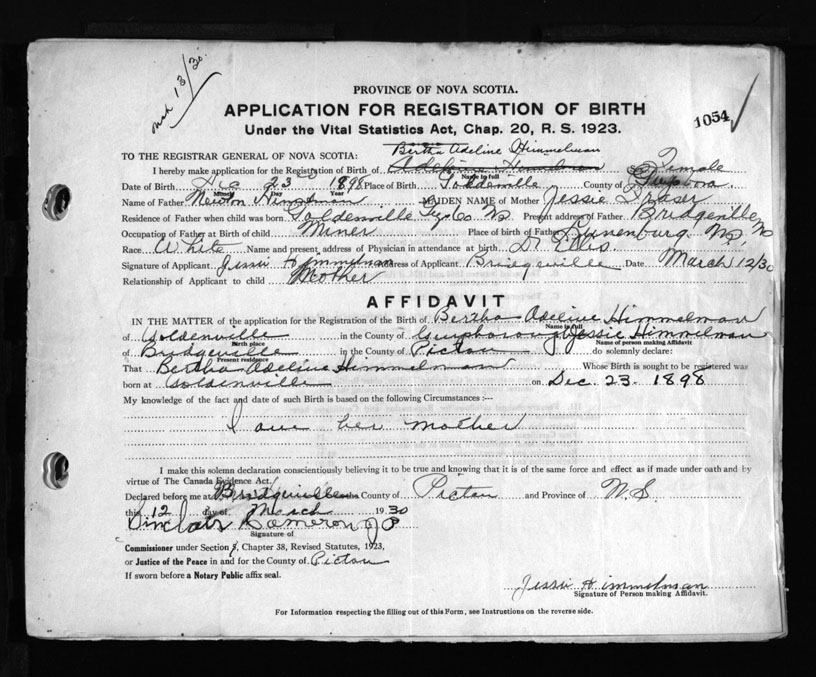 mch 13/30.
PROVINCE OF NOVA SCOTIA.
APPLICATION FOR REGISTRATION OF BIRTH
1054
Under the Vital Statistics Act, Chap. 20, R. S. 1923.
Bertha Adeline Himmelman
TO THE REGISTRAR GENERAL OF NOVA SCOTIA:
I hereby make application for the Registration of Birth of Female
Name in full
Date of Birth Dec 23 1898 Place of Birth Goldenville County of
Month Day Year
Name of Father Newton Himmelman MAIDEN NAME of Mother Jessie Fraser
Residence of Father when child was born Goldenville Guy. Co NS. Present address of Father Bridgeville NS
Occupation of Father at Birth of child Miner Place of birth of Father Lunenburg. NS,
Race White Name and present address of Physician in attendance at birth Dr Ellis
Signature of Applicant Jessie Himmelman Address of Applicant Bridgeville Date March 12/30
Relationship of Applicant to child Mother
AFFIDAVIT
IN THE MATTER of the application for the Registration of the Birth of Bertha Adeline Himmelman
Name in full
of Goldenville in the County of Guysborough Jessie Himmelman
Birth place Name of person making Affidavit
of Bridgeville in the County of Pictou do solemnly declare:
Present residence
That Bertha Adeline Himmelman Whose Birth is sought to be registered was
born at Goldenville on Dec. 23. 1898
My knowledge of the fact and date of such Birth is based on the following Circumstances :—
I am her mother
I make this solemn declaration conscientiously believing it to be true and knowing that it is of the same force and effect as if made under oath and by
virtue of The Canada Evidence Act.
Declared before me at Bridgeville County of Pictou and Province of N.S.
this 12 day of March 1930
Sinclair Cameron J P
Signature of
Commissioner under Section , Chapter 38, Revised Statutes, 1923,
or Justice of the Peace in and for the County of Pictou
If sworn before a Notary Public affix seal.
Jessie Himmelman
Signature of Person making Affidavit.
For Information respecting the filling out of this Form, see Instructions on the reverse side.